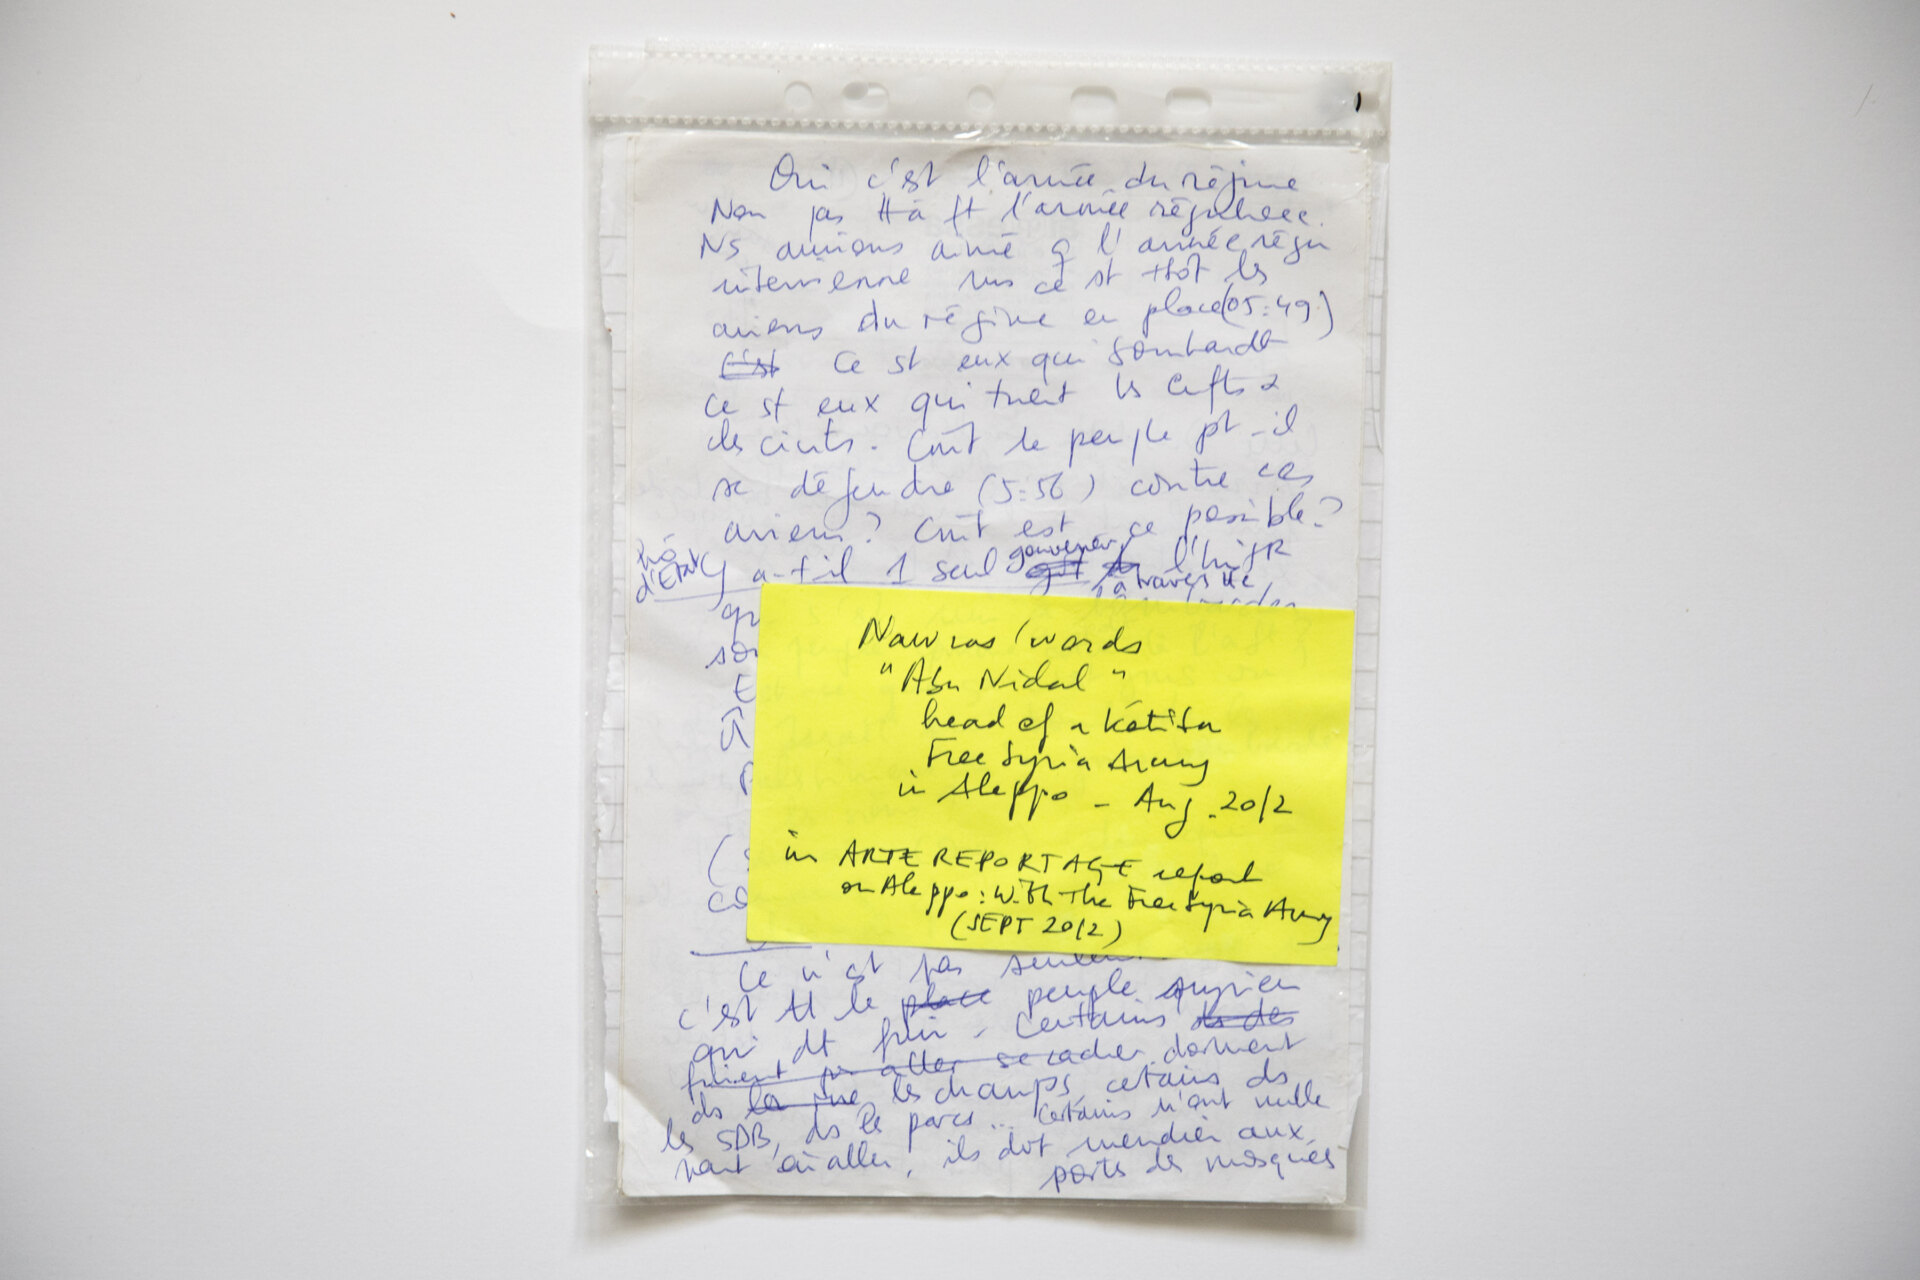 Oui c'est l'armée du régime
Non pas tt à ft l'armée régulière.
Ns aurions aimé q l'armée régu
intervienne ms ce st ttôt les
avions du régime en place (05:49)
C'est Ce st eux qui bombardt
ce st eux qui tuent ls
des Cmt le peuple pt-il
se défendre (5:56) contre ces
avions? Cmt est ce possible?
d'Etat
gouverneur
Y a-t-il 1 seul l'histR
à travers le
qu
so
(
co
Ce n'est pas seulem
c'est tt le place peuple syrien
qui dt fuir. Certains ds des
fuient pr aller se cacher dorment
ds la rue, ls champs, certains ds
ls SDB, ds ls parcs... Certains n'ont nulle
part où aller, ils dvt mendier aux
portes des mosquées
Nawras' words
"Abu Nidal"
head of a Katiba
Free Syria Army
in Aleppo - Aug. 2012
in ARTE REPORTAGE report
on Aleppo: With the Free Syria Army
(SEPT 2012)